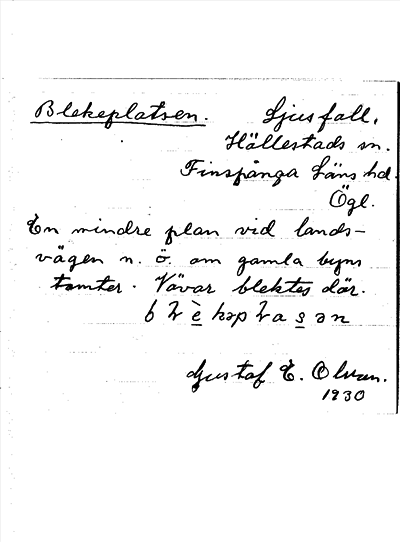 Blekeplatsen. Ljusfall,
Hällestads sn.
Finspånga Läns hd.
Ögl.
En mindre plan vid lands-
vägen n. ö. om gamla byns
tomter. Vävar blektes där.
Gustaf E. Olson.
1930